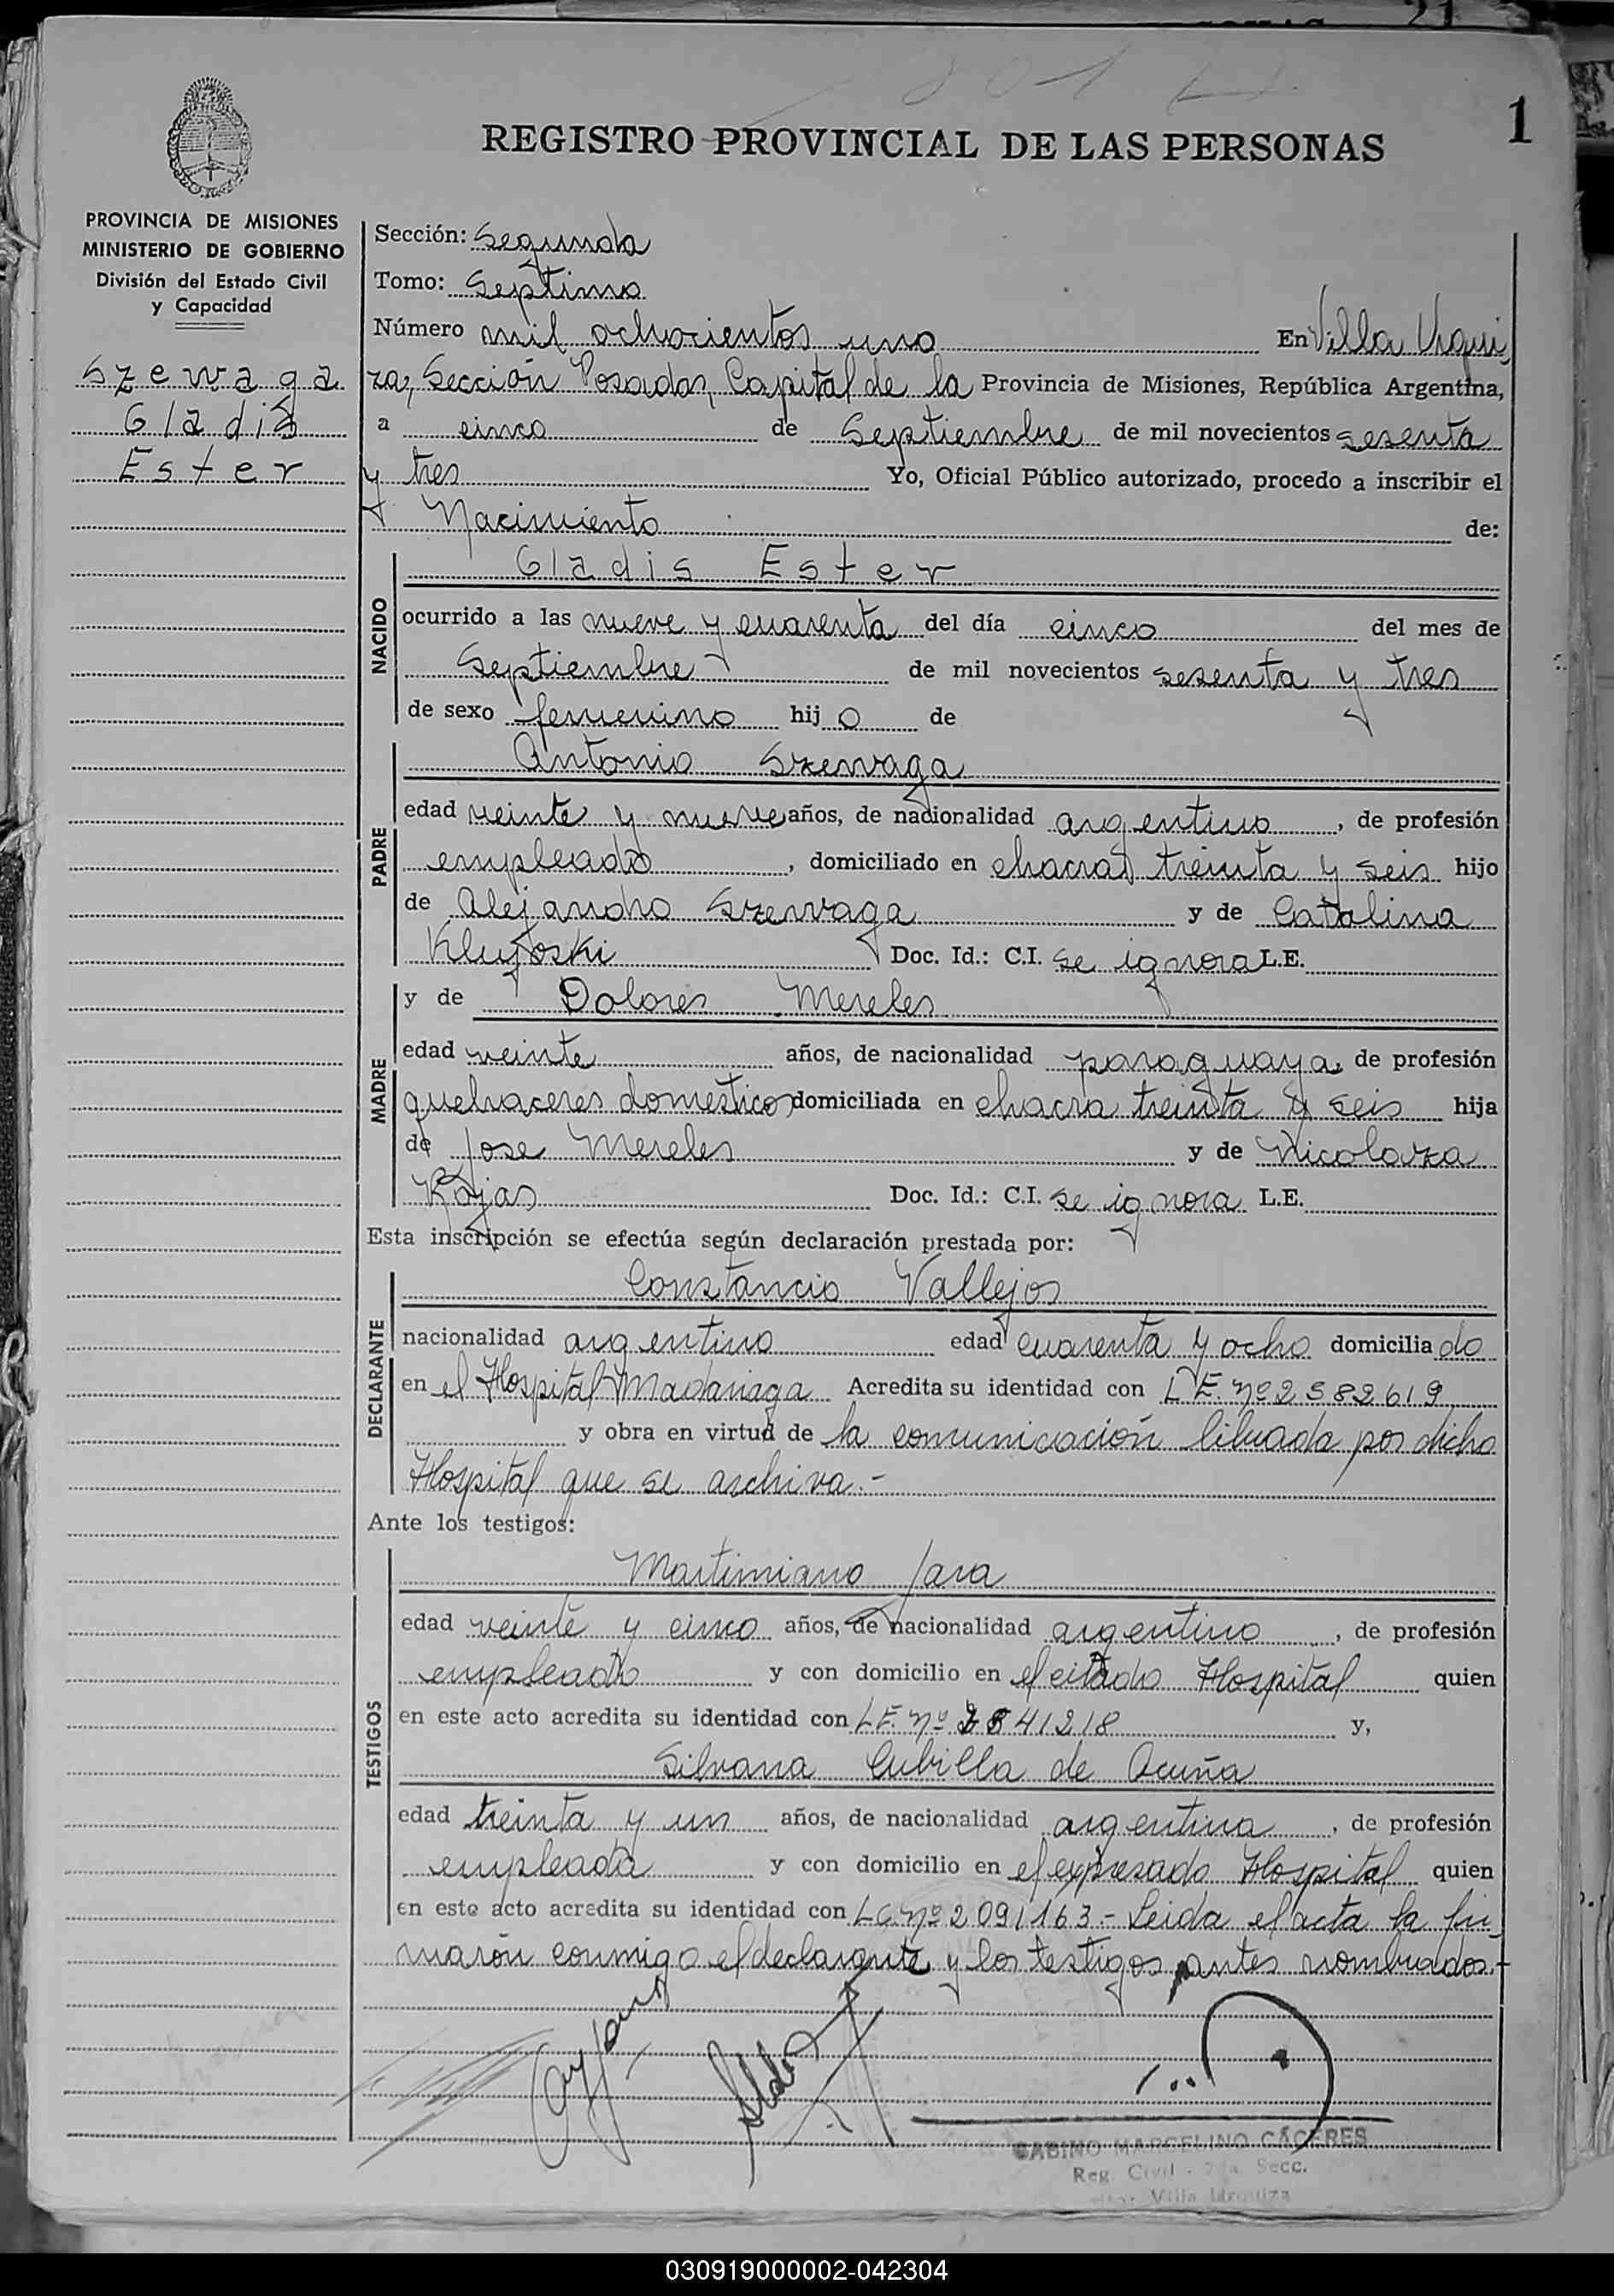 REGISTRO PROVINCIAL DE LAS PERSONAS
1
PROVINCIA DE MISIONES
MINISTERIO DE GOBIERNO
División del Estado Civil
y Capacidad
Szewaga
Gladis
Ester
Sección: Segunda
Tomo: Septimo
Número mil ochocientos uno En Villa Urqui
za, Sección Posadas, Capital de la Provincia de Misiones, República Argentina,
a cinco de Septiembre de mil novecientos sesenta
y tres Yo, Oficial Público autorizado, procedo a inscribir el
Nacimiento de:
NACIDO
Gladis Ester
ocurrido a las nueve y cuarenta del día cinco del mes de
Septiembre de mil novecientos sesenta y tres
de sexo femenino hij o de
PADRE
Antonio Szewaga
edad veinte y nueve años, de nacionalidad argentino, de profesión
empleado, domiciliado en chacra treinta y seis hijo
de Alejandro Szewaga y de Catalina
Klujoski Doc. Id.: C.I. se ignora L.E.
MADRE
y de Dolores Mereles
edad veinte años, de nacionalidad paraguaya, de profesión
quehaceres domesticos domiciliada en chacra treinta y seis hija
de Jose Mereles y de Nicolaza
Rojas Doc. Id.: C.I. se ignora L.E.
Esta inscripción se efectúa según declaración prestada por:
DECLARANTE
Constancio Vallejos
nacionalidad argentino edad cuarenta y ocho domicilia do
en el Hospital Madariaga Acredita su identidad con L.E. Nº 2582619
y obra en virtud de la comunicación librada por dicho
Hospital que se archiva.-
Ante los testigos:
TESTIGOS
Martimiano Jara
edad veinte y cinco años, de nacionalidad argentino, de profesión
empleado y con domicilio en el citado Hospital quien
en este acto acredita su identidad con L.E. Nº 41218 y,
Silvana Cubilla de Acuña
edad treinta y un años, de nacionalidad argentina, de profesión
empleada y con domicilio en el expresado Hospital quien
en este acto acredita su identidad con L.C. Nº 2091163.- Leida el acta la fir
maron conmigo el declarante y los testigos antes nombrados.-
SABINO MARCELINO CÁCERES
Reg. Civil - 2a. Secc.
Villa Urquiza
030919000002-042304